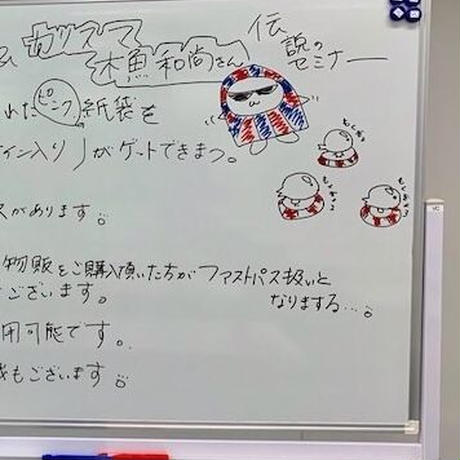 カリスマ
木魚和尚さん
伝説のセミナー
れたピンク紙袋を
イン入り)がゲットできまつ。
もくぎょ
もくぎょ
もくぎょ
スがあります
物販をご購入頂いた方がファストパス扱いと
なりまする…。
ございます。
用可能です。
もございます